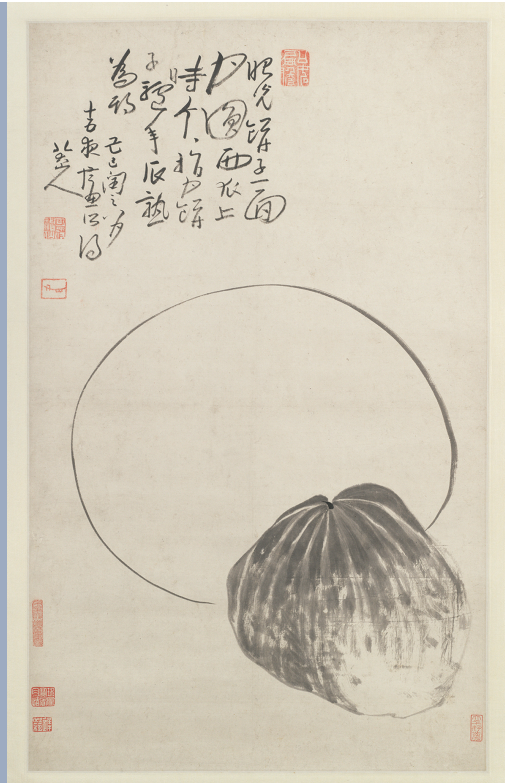 昭光餅子一面
月圓西瓜上
時个个指月餅
子驢年瓜熟
為期 己巳閏之八月
十五夜畫所得
八大山人